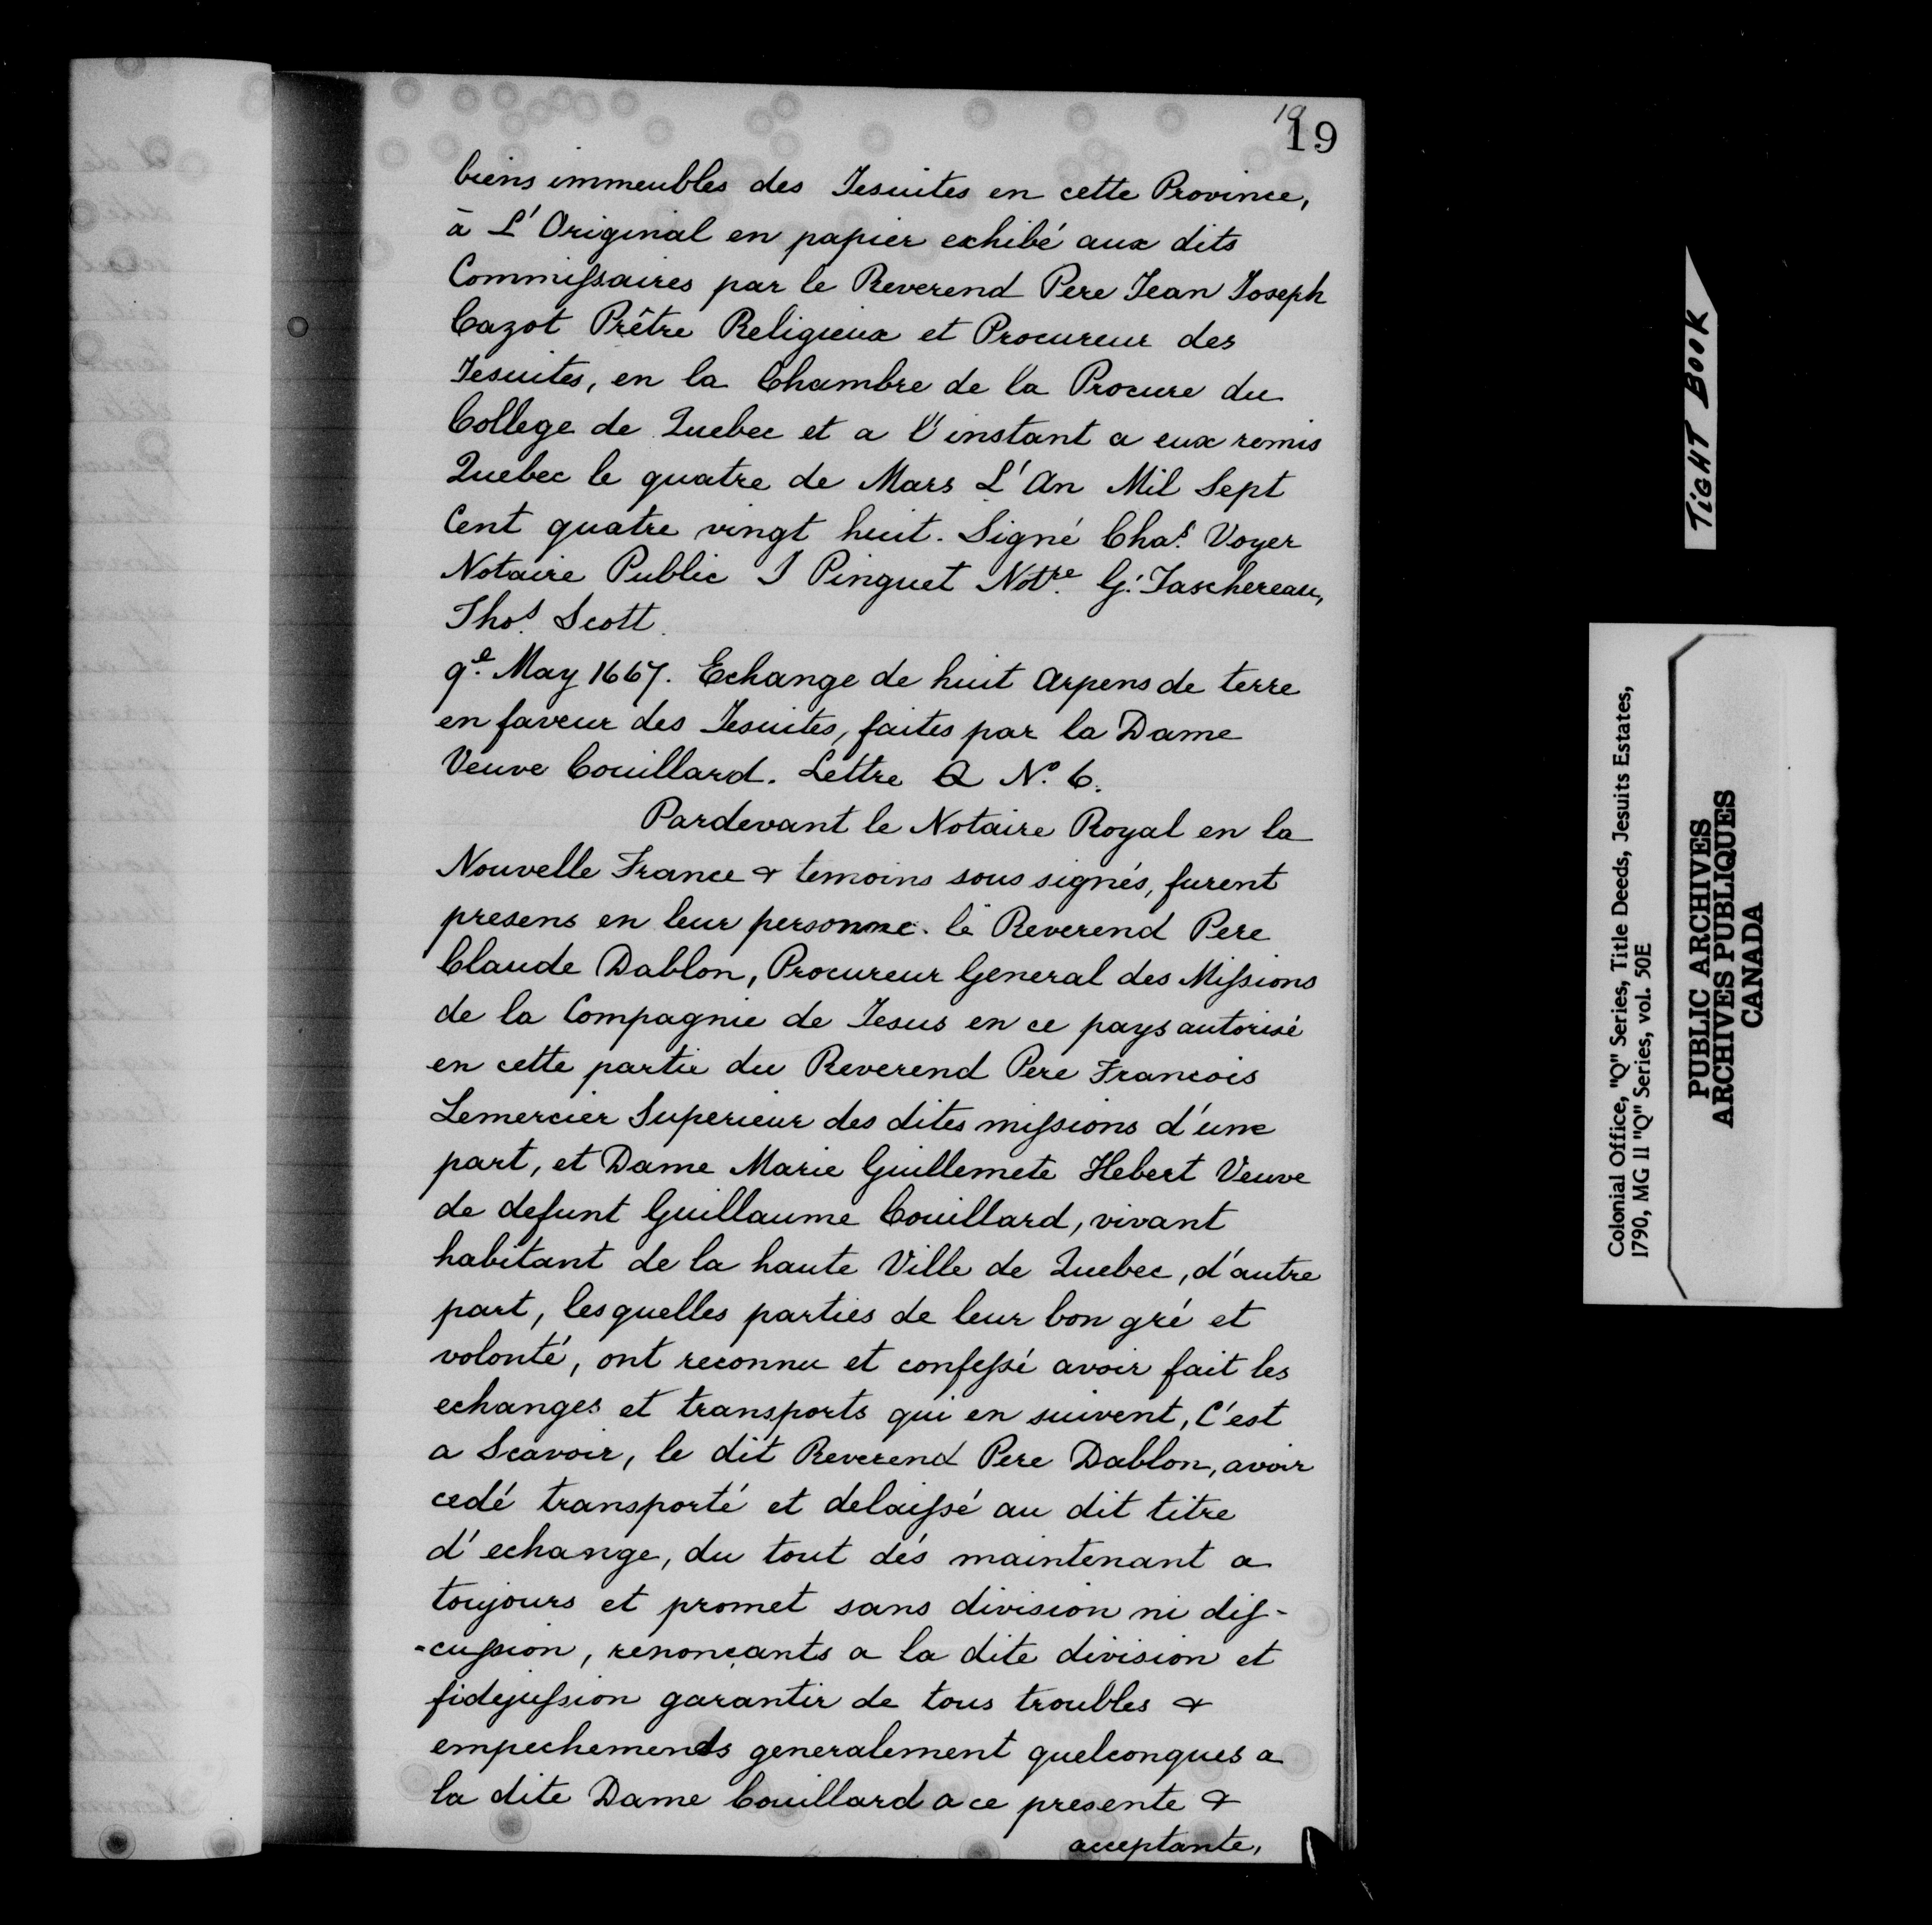 19
19
biens immeubles des Jesuites en cette Province,
à L'Original en papier exhibé aux dits
Commissaires par le Reverend Pere Jean Joseph
Cazot Prêtre Religieux et Procureur des
Jesuites, en la Chambre de la Procure du
College de Quebec et a l'instant a eux remis
Quebec le quatre de Mars L'An Mil Sept
Cent quatre vingt huit. Signé Chas. Voyer
Notaire Public J Pinguet Notre. G. Taschereau,
Thos. Scott.
9e. May 1667. Echange de huit Arpens de terre
en faveur des Jesuites, faites par la Dame
Veuve Couillard. Lettre Q No. 6.
Pardevant le Notaire Royal en la
Nouvelle France & temoins sous signés, furent
presens en leur personne. le Reverend Pere
Claude Dablon, Procureur General des Missions
de la Compagnie de Jesus en ce pays autorisé
en cette partie du Reverend Pere Francois
Lemercier Superieur des dites missions d'une
part, et Dame Marie Guillemete Hebert Veuve
de defunt Guillaume Couillard, vivant
habitant de la haute Ville de Quebec, d'autre
part, lesquelles parties de leur bon gré et
volonté, ont reconnu et confessé avoir fait les
echanges et transports qui en suivent, C'est
a Scavoir, le dit Reverend Pere Dablon, avoir
cedé transporté et delaissé au dit titre
d'echange, du tout dés maintenant a
toujours et promet sans division ni dis-
-cussion, renonçants a la dite division et
fidejussion garantir de tous troubles &
empechements generalement quelconques a
la dite Dame Couillard a ce presente &
acceptante,
TIGHT BOOK
Colonial Office, "Q" Series, Title Deeds, Jesuits Estates,
1790, MG 11 "Q" Series, vol. 50E
PUBLIC ARCHIVES
ARCHIVES PUBLIQUES
CANADA